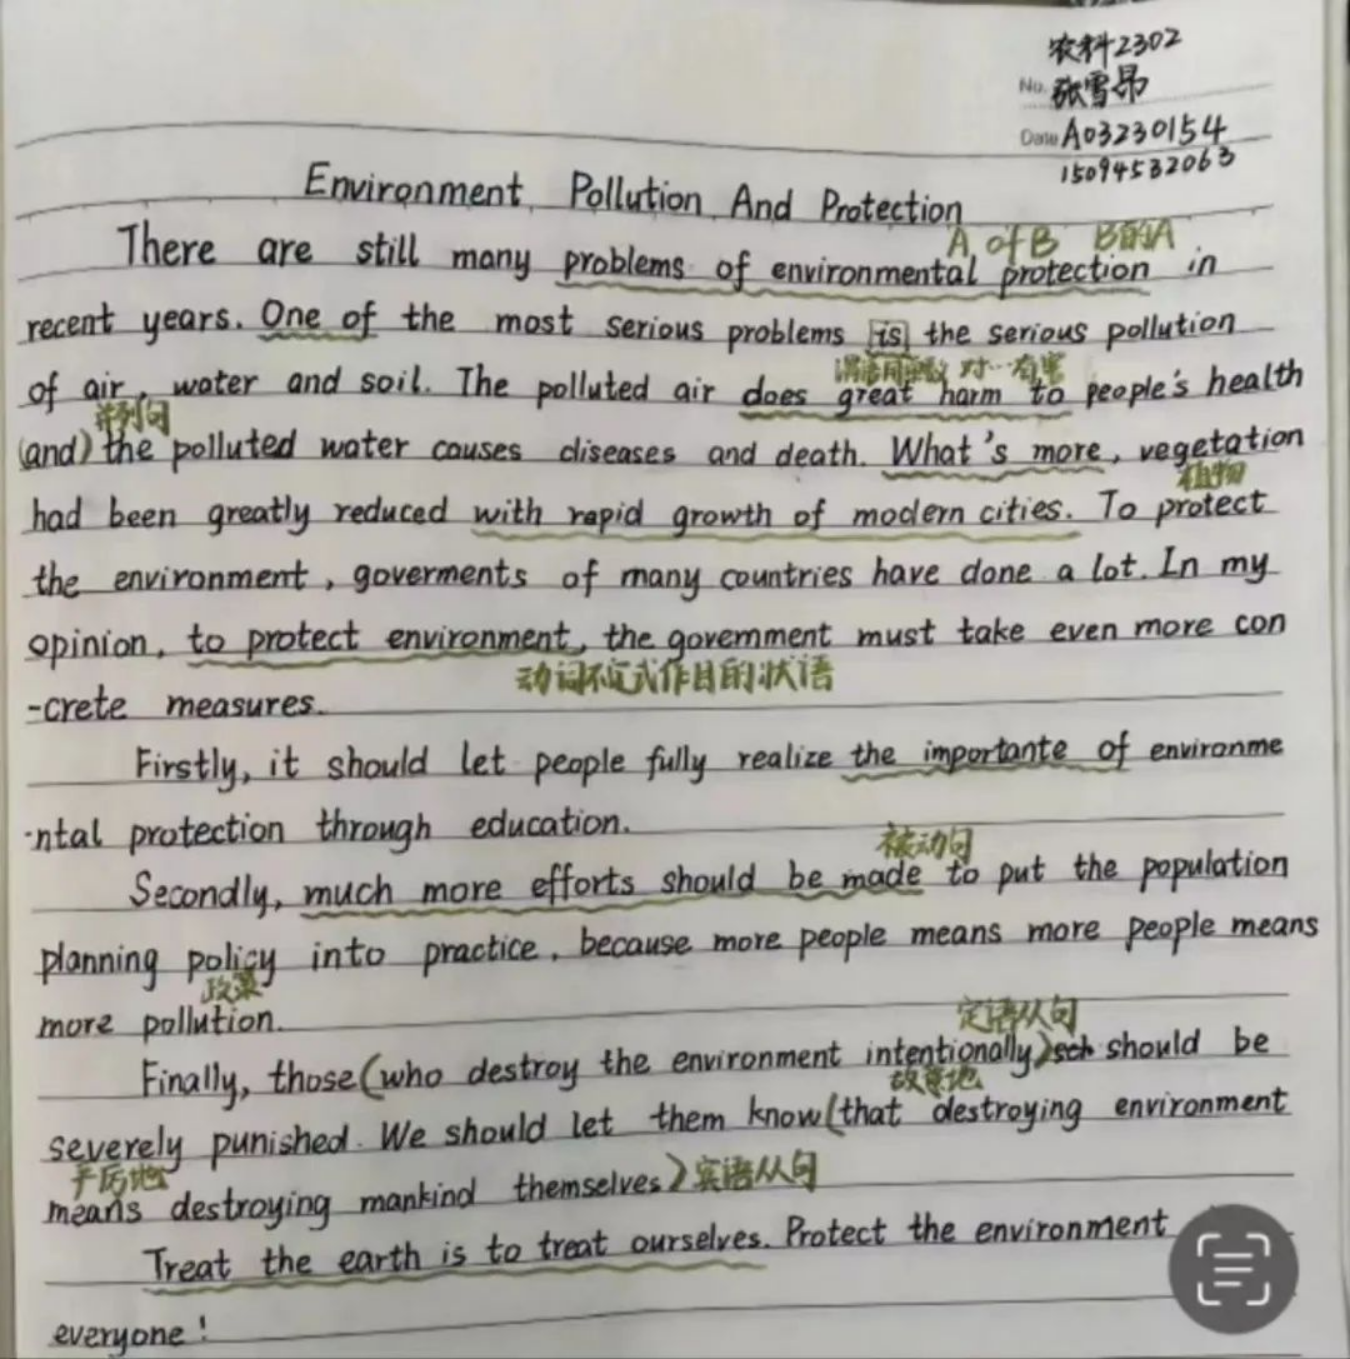 农科2302
No. 张雪昂
Date A03230154
15094532063
Environment Pollution And Protection
A of B B的A
There are still many problems of environmental protection in
recent years. One of the most serious problems is the serious pollution
谓语用单数 对…有害
of air, water and soil. The polluted air does great harm to people's health
并列句
(and) the polluted water causes diseases and death. What's more, vegetation
植物
had been greatly reduced with rapid growth of modern cities. To protect
the environment, goverments of many countries have done a lot. In my
opinion, to protect environment, the government must take even more con
动词不定式作目的状语
-crete measures.
Firstly, it should let people fully realize the importante of environme
-ntal protection through education.
被动句
Secondly, much more efforts should be made to put the population
planning policy into practice, because more people means more people means
政策
more pollution.
定语从句
Finally, those (who destroy the environment intentionally) sch should be
故意地
severely punished. We should let them know (that destroying environment
严厉地
means destroying mankind themselves) 宾语从句
Treat the earth is to treat ourselves. Protect the environment
everyone!